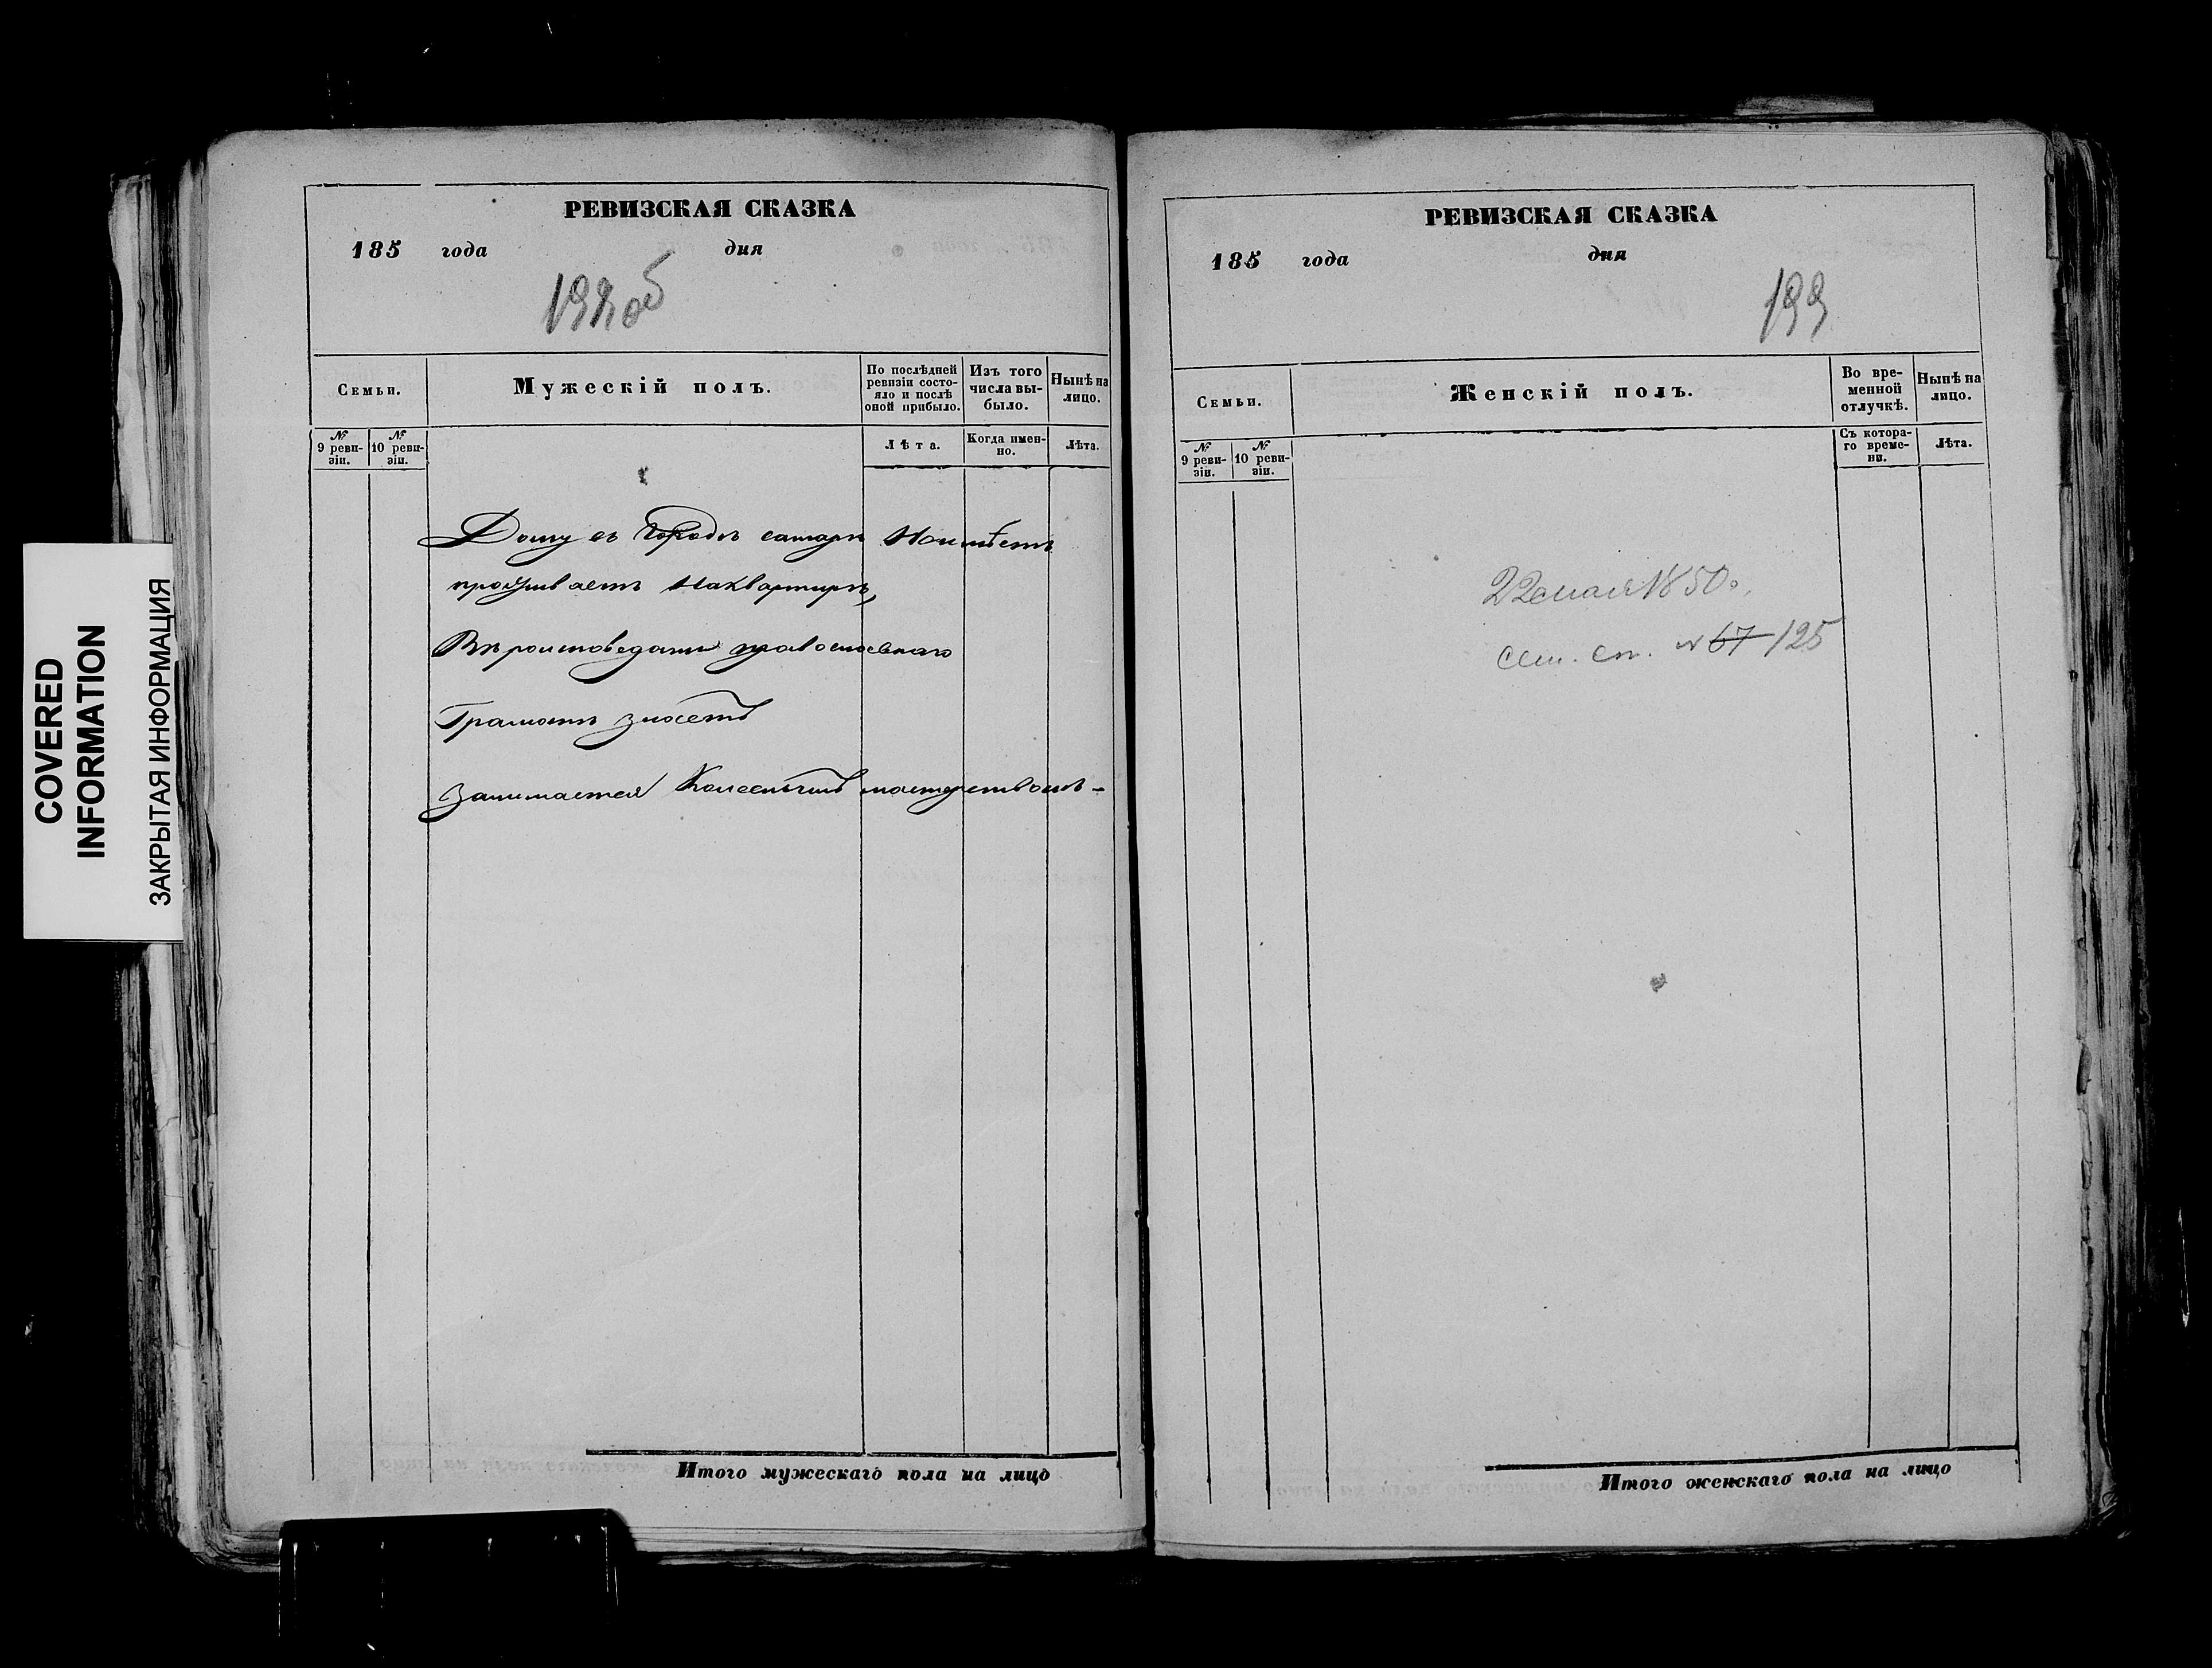 COVERED
INFORMATION
ЗАКРЫТАЯ ИНФОРМАЦИЯ
РЕВИЗСКАЯ СКАЗКА
185 года дня
198 об
Семьи.
Мужескій полъ.
По послѣдней ревизіи состояло и послѣ оной прибыло.
Изъ того числа выбыло.
Нынѣ на лицо.
№ 9 ревизіи.
№ 10 ревизіи.
Лѣта.
Когда именно.
Лѣта.
Дому въ городѣ самарѣ Не имѣетъ
проживаетъ Наквартирѣ,
Вѣроисповедани православнаго
Грамотѣ знаетъ
Занимается мастерствомъ -
Итого мужескаго пола на лицо
РЕВИЗСКАЯ СКАЗКА
185 года дня
199
Семьи.
Женскій полъ.
Во временной отлучкѣ.
Нынѣ на лицо.
№ 9 ревизіи.
№ 10 ревизіи.
Съ котораго времени.
Лѣта.
22 мая 1850 г.
сем. сп. № 67 125
Итого женскаго пола на лицо